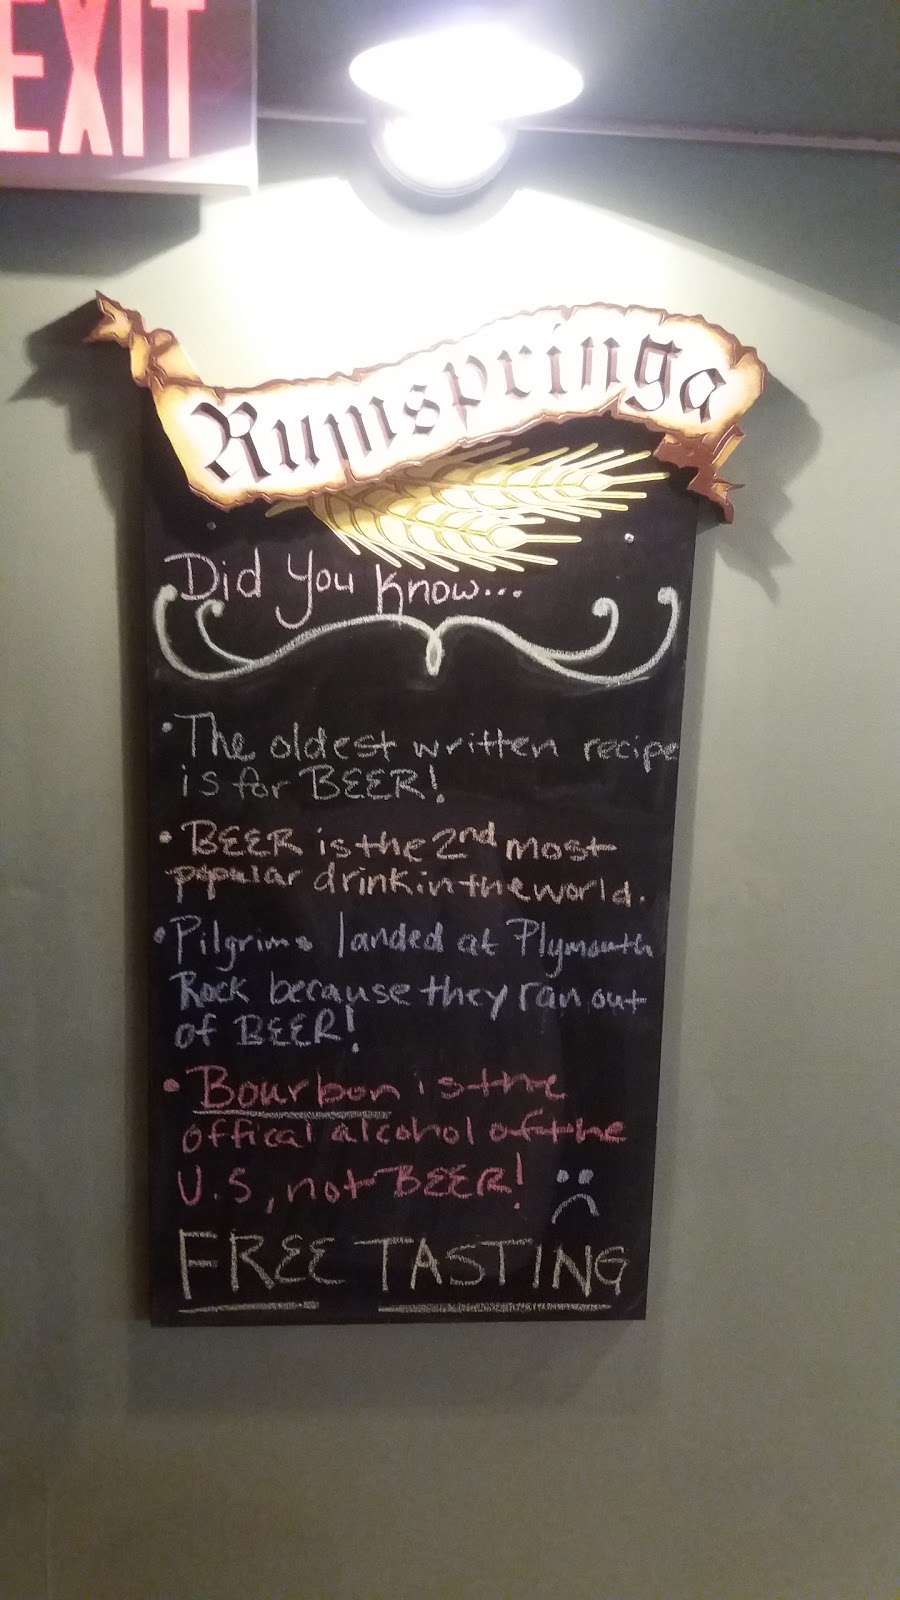 EXIT
Rumspringa
Did You Know...
• The oldest written recipe
is for BEER!
• BEER is the 2nd most
popular drink in the world.
• Pilgrims landed at Plymouth
Rock because they ran out
of BEER!
• Bourbon is the
offical alcohol of the
U.S, not BEER! :(
FREE TASTING